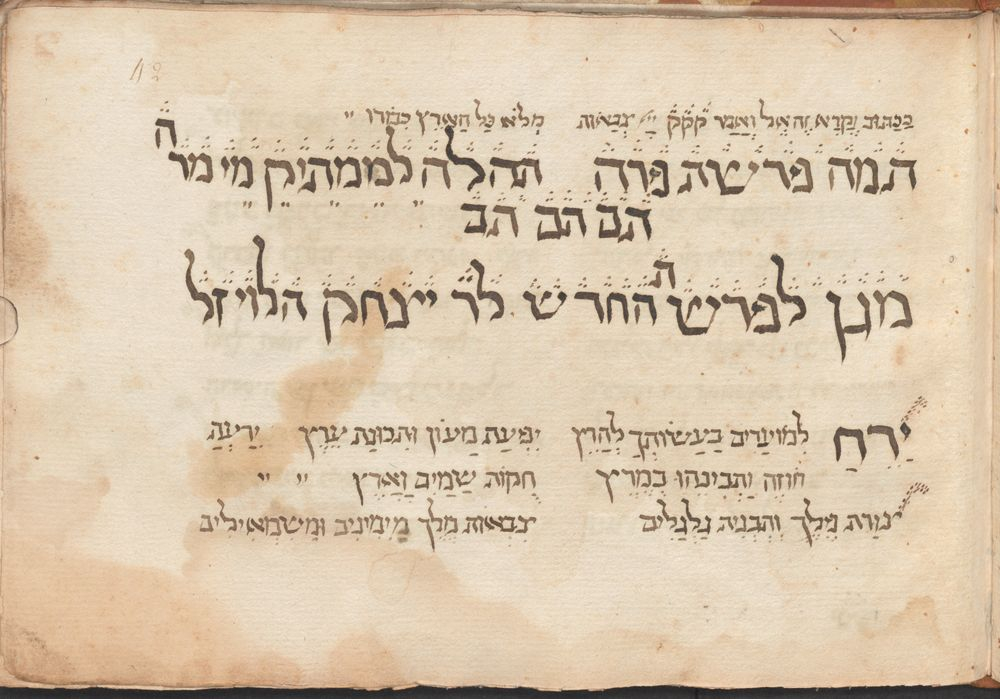 42
בככתוב וקרא זה אל זה ואמר קקק יי צבאות מלא כל הארץ כבודו
תמה פרשת פרה תהלה לממתיק מי מרה
תם הם תם
מגן לפרשת החדש ש לר יצחק הלוי זל
ירח למועדים בעשותך להרץ יפיעת מעון ותכונת ערץ ידיעה
חוזה ותבינהו במרץ חקות שמים וארץ
צורת מלך והבנית גלגלים צבאות מלך מימינים ומשמאילים